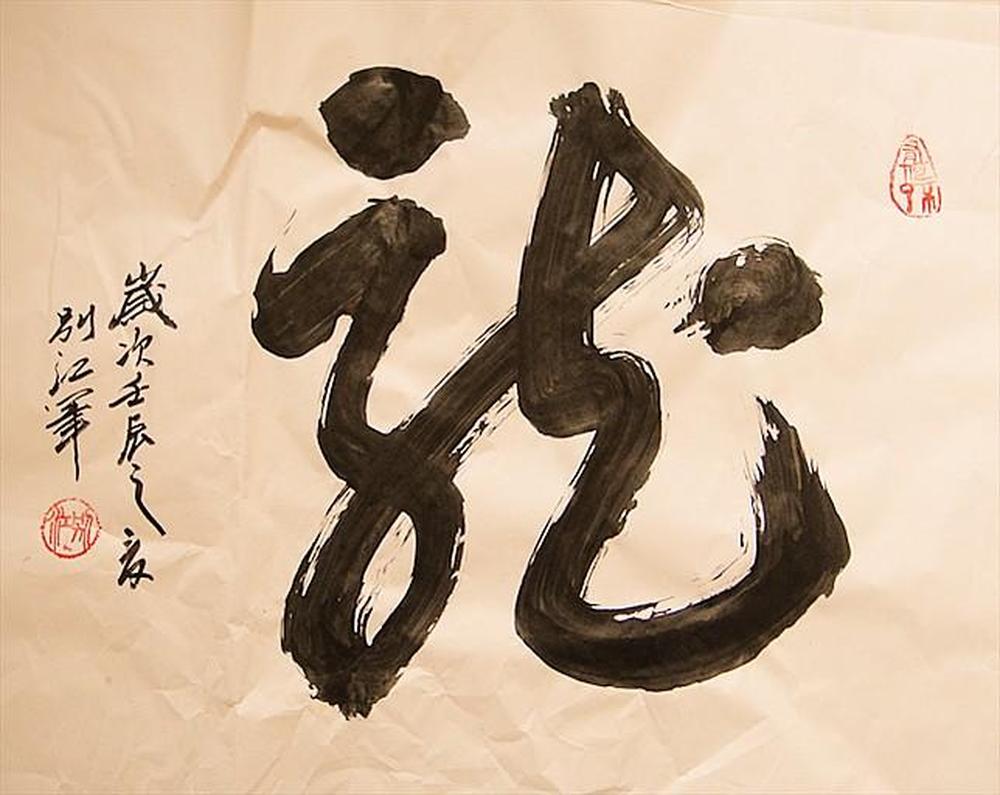 龍
歲次壬辰之夏
别江筆